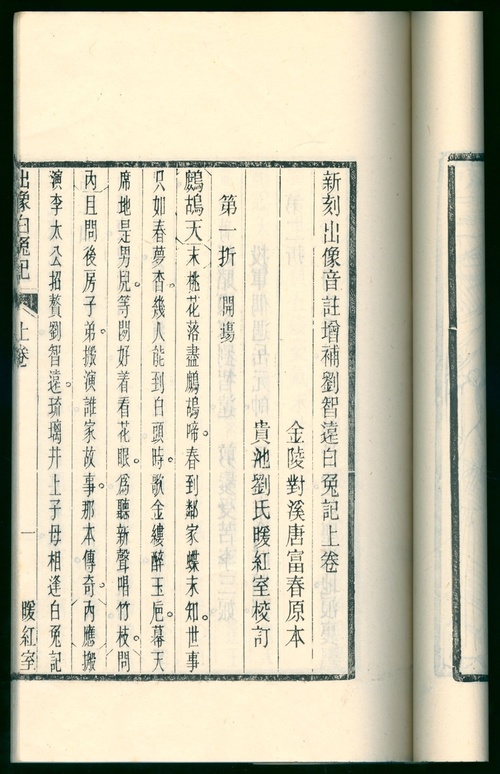 新刻出像音註增補劉智遠白兔記上卷
金陵對溪唐富春原本
貴池劉氏暖紅室校訂
第一折 開場
鷓鴣天末桃花落盡鷓鴣啼。春到鄰家蝶未知世事
只如春夢杳。幾人能到白頭時。歌金縷醉玉巵。幕天
席地是男兒。等閒好着看花眼。爲聽新聲唱竹枝。問
內且問後房子弟。搬演誰家故事。那本傳奇。內應搬
演李太公招贅劉智遠。琉璃井上子母相逢白兔記
出像白兔記 上卷 一 暖紅室